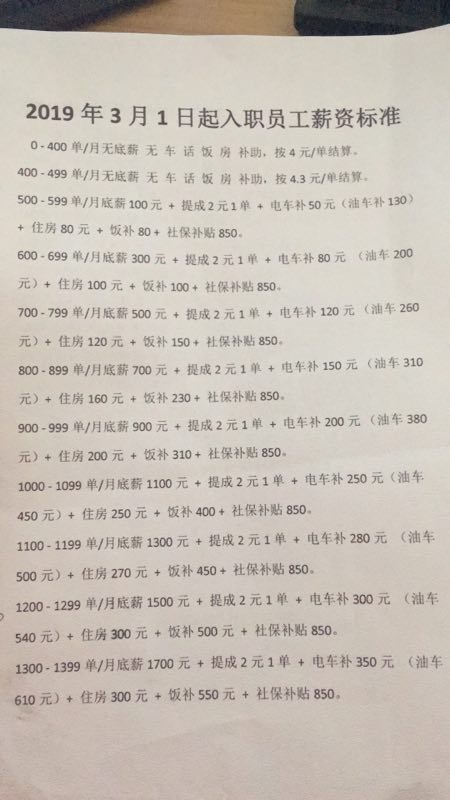 2019 年 3 月 1 日起入职员工薪资标准
0 - 400 单/月无底薪 无 车 话 饭 房 补助，按 4 元/单结算。
400 - 499 单/月无底薪 无 车 话 饭 房 补助，按 4.3 元/单结算。
500 - 599 单/月底薪 100 元 + 提成 2 元 1 单 + 电车补 50 元（油车补 130）
+ 住房 80 元 + 饭补 80 + 社保补贴 850。
600 - 699 单/月底薪 300 元 + 提成 2 元 1 单 + 电车补 80 元 （油车 200
元）+ 住房 100 元 + 饭补 100 + 社保补贴 850。
700 - 799 单/月底薪 500 元 + 提成 2 元 1 单 + 电车补 120 元 （油车 260
元）+ 住房 120 元 + 饭补 150 + 社保补贴 850。
800 - 899 单/月底薪 700 元 + 提成 2 元 1 单 + 电车补 150 元 （油车 310
元）+ 住房 160 元 + 饭补 230 + 社保补贴 850。
900 - 999 单/月底薪 900 元 + 提成 2 元 1 单 + 电车补 200 元 （油车 380
元）+ 住房 200 元 + 饭补 310 + 社保补贴 850。
1000 - 1099 单/月底薪 1100 元 + 提成 2 元 1 单 + 电车补 250 元（油车
450 元）+ 住房 250 元 + 饭补 400 + 社保补贴 850。
1100 - 1199 单/月底薪 1300 元 + 提成 2 元 1 单 + 电车补 280 元 （油车
500 元）+ 住房 270 元 + 饭补 450 + 社保补贴 850。
1200 - 1299 单/月底薪 1500 元 + 提成 2 元 1 单 + 电车补 300 元 （油车
540 元）+ 住房 300 元 + 饭补 500 元 + 社保补贴 850。
1300 - 1399 单/月底薪 1700 元 + 提成 2 元 1 单 + 电车补 350 元 （油车
610 元）+ 住房 300 元 + 饭补 550 元 + 社保补贴 850。